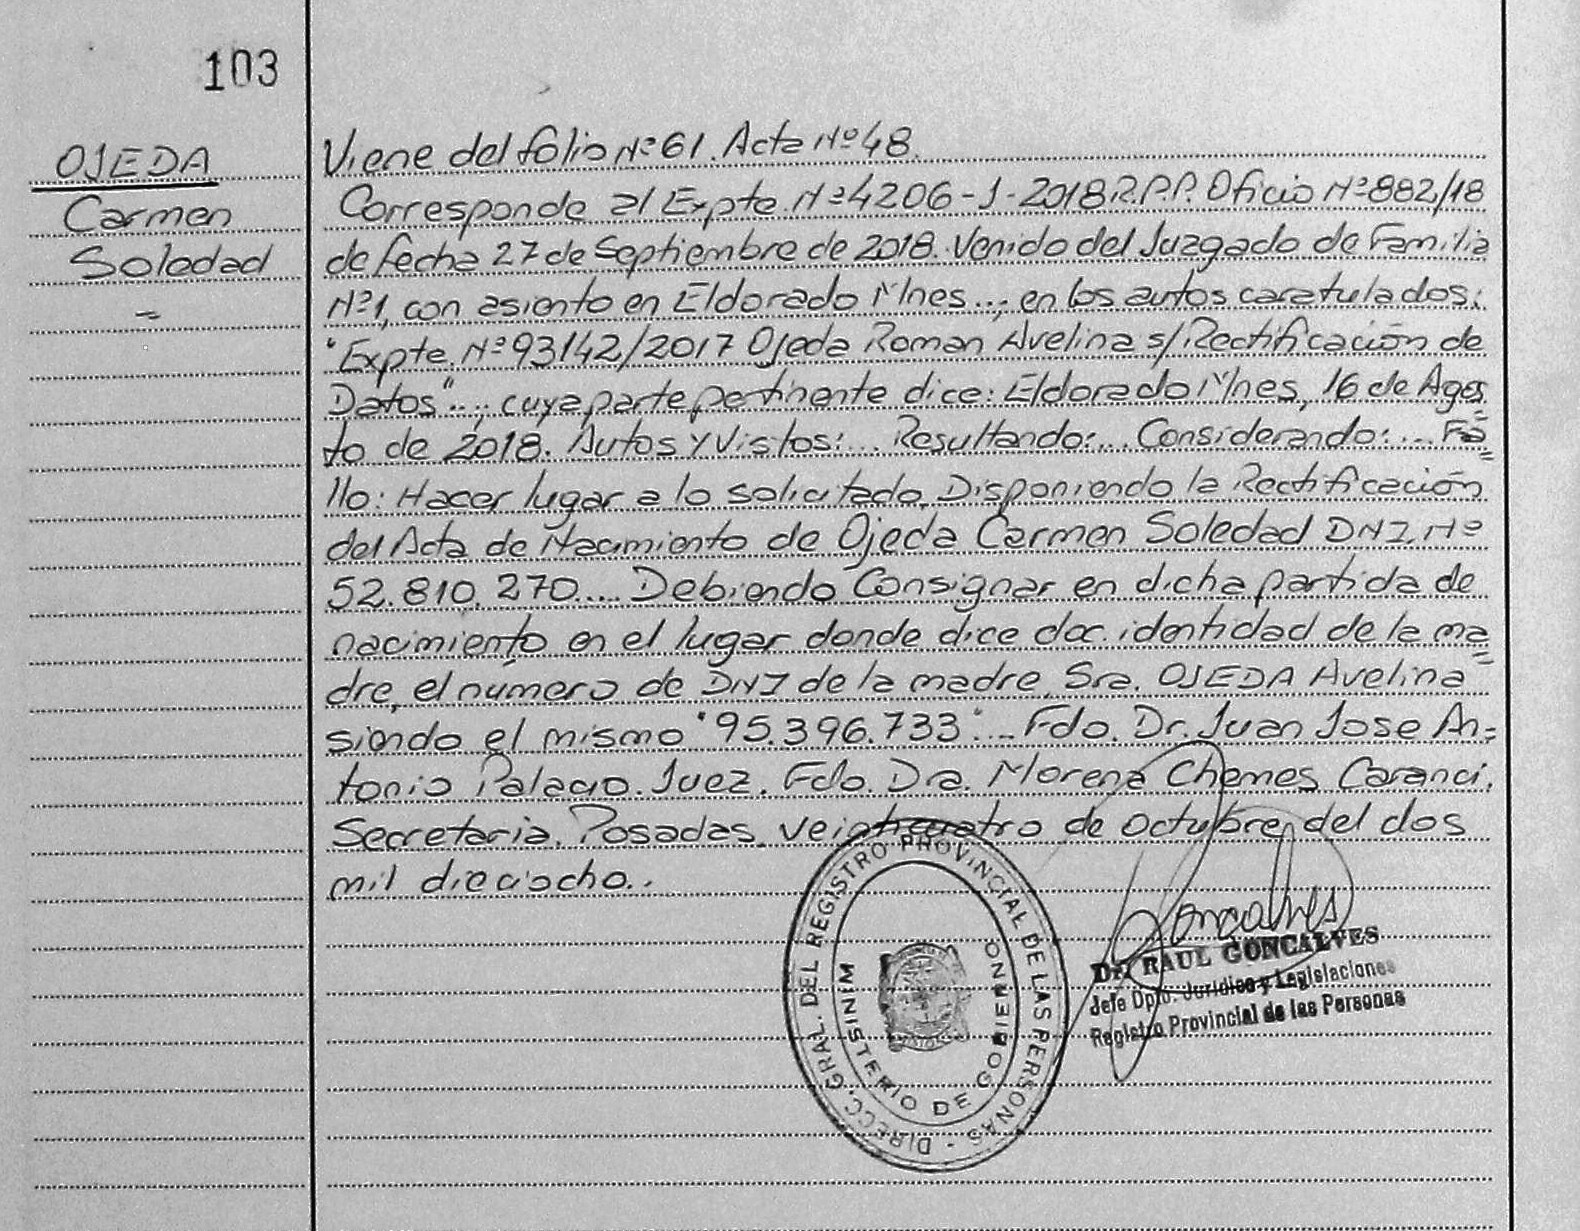 103
OJEDA
Carmen
Soledad
=
Viene del folio Nº 61. Acta Nº 48.
Corresponde al Expte. Nº 4206-J-2018 R.P.P. Oficio Nº 882/18
de fecha 27 de Septiembre de 2018. Venido del Juzgado de Familia
Nº 1, con asiento en Eldorado Mnes...; en los autos caratulados:
"Expte. Nº 93142/2017 Ojeda Roman Avelina s/Rectificación de
Datos"...; cuya parte pertinente dice: Eldorado Mnes, 16 de Agos=
to de 2018. Autos y Vistos:... Resultando:... Considerando:... Fa=
llo: Hacer lugar a lo solicitado, Disponiendo la Rectificación
del Acta de Nacimiento de Ojeda Carmen Soledad DNI. Nº
52.810.270.... Debiendo Consignar en dicha partida de
nacimiento en el lugar donde dice doc. identidad de la ma=
dre, el número de DNI de la madre, Sra. OJEDA Avelina
siendo el mismo "95.396.733"... Fdo. Dr. Juan Jose An=
tonio Palacio. Juez. Fdo. Dra. Morena Chemes Caranci.
Secretaria. Posadas, veinticuatro de octubre, del dos
mil dieciocho..
DIRECC. GRAL. DEL REGISTRO PROVINCIAL DE LAS PERSONAS -
MINISTERIO DE GOBIERNO
Goncalves
Dr. RAUL GONCALVES
Jefe Dpto. Jurídico y Legislaciones
Registro Provincial de las Personas